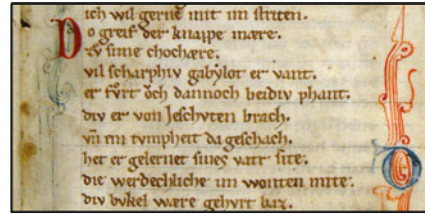 ich wil gerne mit im striten.
Do greif der knappe mære.
zv sime chochære.
vil scharphiv gabylot er vant.
er fvrt och dannoch beidiv phant.
div er von Jeschvten brach.
vn̄ ein tvmpheit da geschach.
het er gelernet sines vatr site.
die werdechliche im wonten mite.
div bvkel wære gehvrt baz.